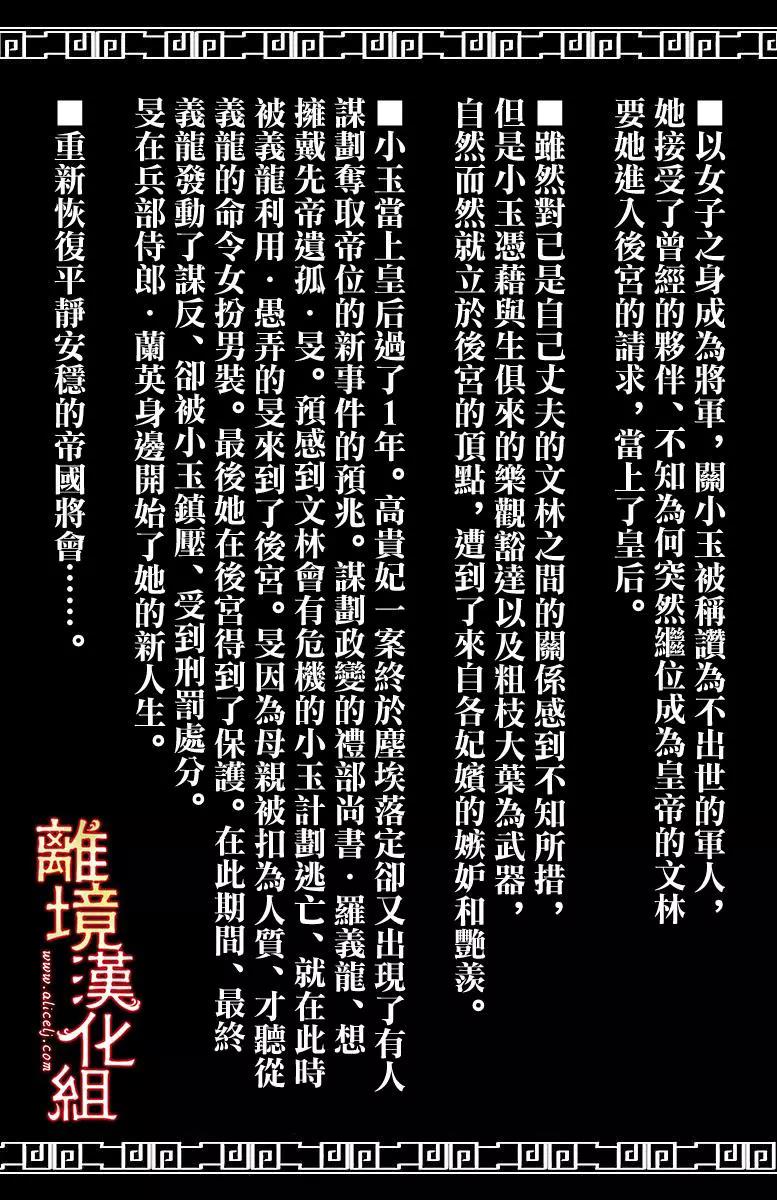 ■以女子之身成為將軍，關小玉被稱讚為不出世的軍人，
她接受了曾經的夥伴、不知為何突然繼位成為皇帝的文林
要她進入後宮的請求，當上了皇后。
■雖然對已是自己丈夫的文林之間的關係感到不知所措，
但是小玉憑藉與生俱來的樂觀豁達以及粗枝大葉為武器，
自然而然就立於後宮的頂點，遭到了來自各妃嬪的嫉妒和艷羨。
■小玉當上皇后過了1年。高貴妃一案終於塵埃落定卻又出現了有人
謀劃奪取帝位的新事件的預兆。謀劃政變的禮部尚書．羅義龍、想
擁戴先帝遺孤．旻。預感到文林會有危機的小玉計劃逃亡、就在此時
被義龍利用．愚弄的旻來到了後宮。旻因為母親被扣為人質、才聽從
義龍的命令女扮男裝。最後她在後宮得到了保護。在此期間、最終
義龍發動了謀反、卻被小玉鎮壓、受到刑罰處分。
旻在兵部侍郎．蘭英身邊開始了她的新人生。
■重新恢復平靜安穩的帝國將會……。
離境漢化組
www.alicelj.com